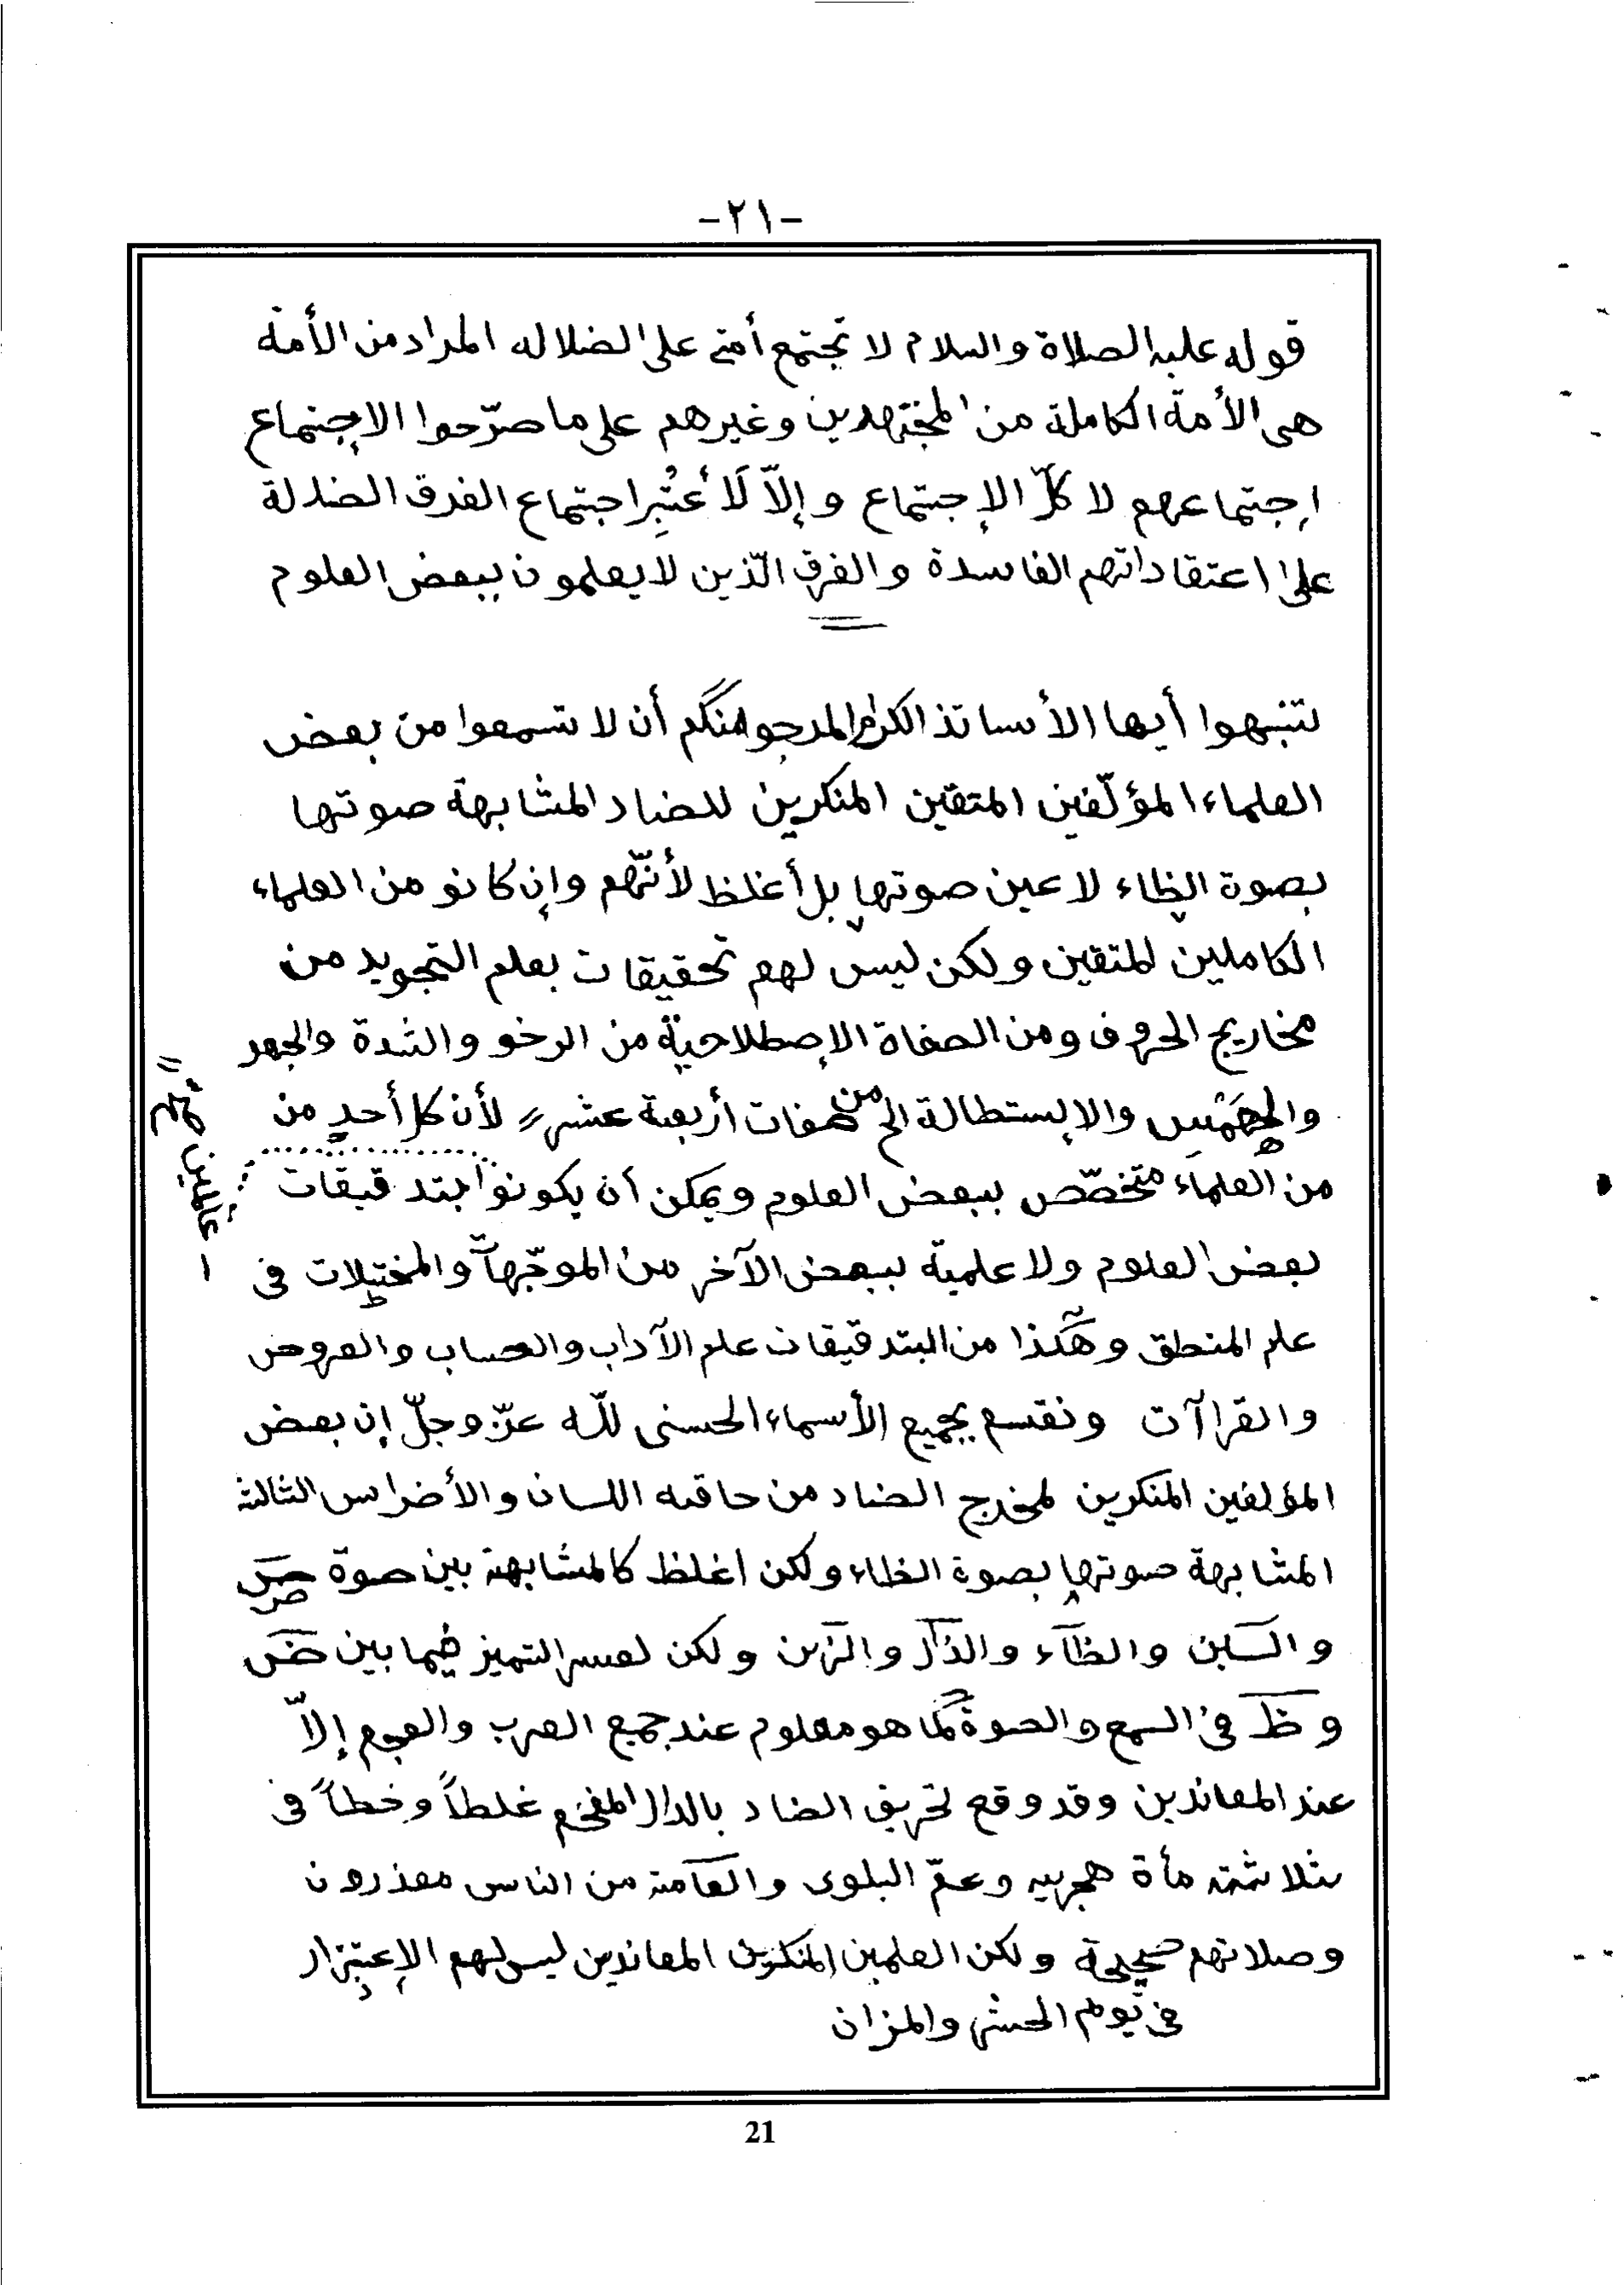 -٢١-
قوله عليه الصلاة والسلام لا تجتمع أمتى على الضلاله المراد من الأمة
هى الأمة الكاملة من المجتهدين وغيرهم على ما صرّحوا الاجتماع
اجتماعهم لا كلّ الإجتماع وإلاّ لَأُعتُبِر اجتماع الفرق الضلالة
على اعتقاداتهم الفاسدة والفرق الّذين لا يعلمون ببعض العلوم
لتنبهوا أيها الأساتذ الكرام المرجو منكم أن لا تسمعوا من بعض
العلماء المؤلّفين المتقين المنكرين للضاد المشابهة صوتها
بصوة الظاء لا عين صوتها بل أغلظ لأنّهم وإن كانو من العلماء
الكاملين المتقين ولكن ليس لهم تحقيقات بعلم التجويد من
مخاريج الحروف ومن الصفاة الإصطلاحية من الرخو والشدة والجهر
والهمس والإستطالة الخ من صفات أربعة عشر لأن كل أحدٍ من
من العلماء متخصّص ببعض العلوم ويمكن أن يكونوا بتدقيقات
بعض العلوم ولا علمية ببعض الآخر من الموجّهات والمختلطات فى
علم المنطق وهكذا من البتدقيقات علم الآداب والحساب والعروض
والقراآت ونقسم بجميع الأسماء الحسنى للّه عزّ وجلّ إن بعض
المؤلفين المنكرين لمخرج الضاد من حاقه اللسان والأضراس الثالثة
المشابهة صوتها بصوة الظاء ولكن اغلظ كالمشابهة بين صوة ص
والسين والظاء والذال والزين ولكن لعسر التميز فيما بين ض
وظ فى السمع والصوة كما هو معلوم عند جميع العرب والعجم إلاّ
عند المعاندين وقد وقع تحريف الضاد بالدال المفخم غلطاً وخطاً فى
ثلاثة مأة هجريه وعمّ البلوى والعامة من الناس معذرون
وصلاتهم صحيحة ولكن العلمين المنكرين المعاندين ليس لهم الإعتذار
فى يوم الحشر والمزان
21